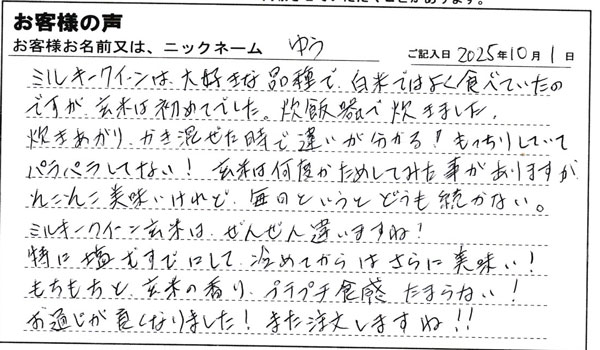 お客様の声
お客様お名前又は、ニックネーム ゆう ご記入日 2025年10月1日
ミルキークイーンは、大好きな品種で、白米ではよく食べていたの
ですが、玄米は初めてでした。炊飯器で炊きました。
炊きあがり、かき混ぜた時で違いが分かる！もっちりしていて
パラパラしてない！玄米は何度かためしてみた事がありますが、
そこそこ美味いけれど、毎日というとどうも続かない。
ミルキークイーン玄米は、ぜんぜん違いますね！
特に塩むすびにして、冷めてからはさらに美味い！
もちもちと、玄米の香り、プチプチ食感 たまらない！
お通じが良くなりました！また注文しますね!!